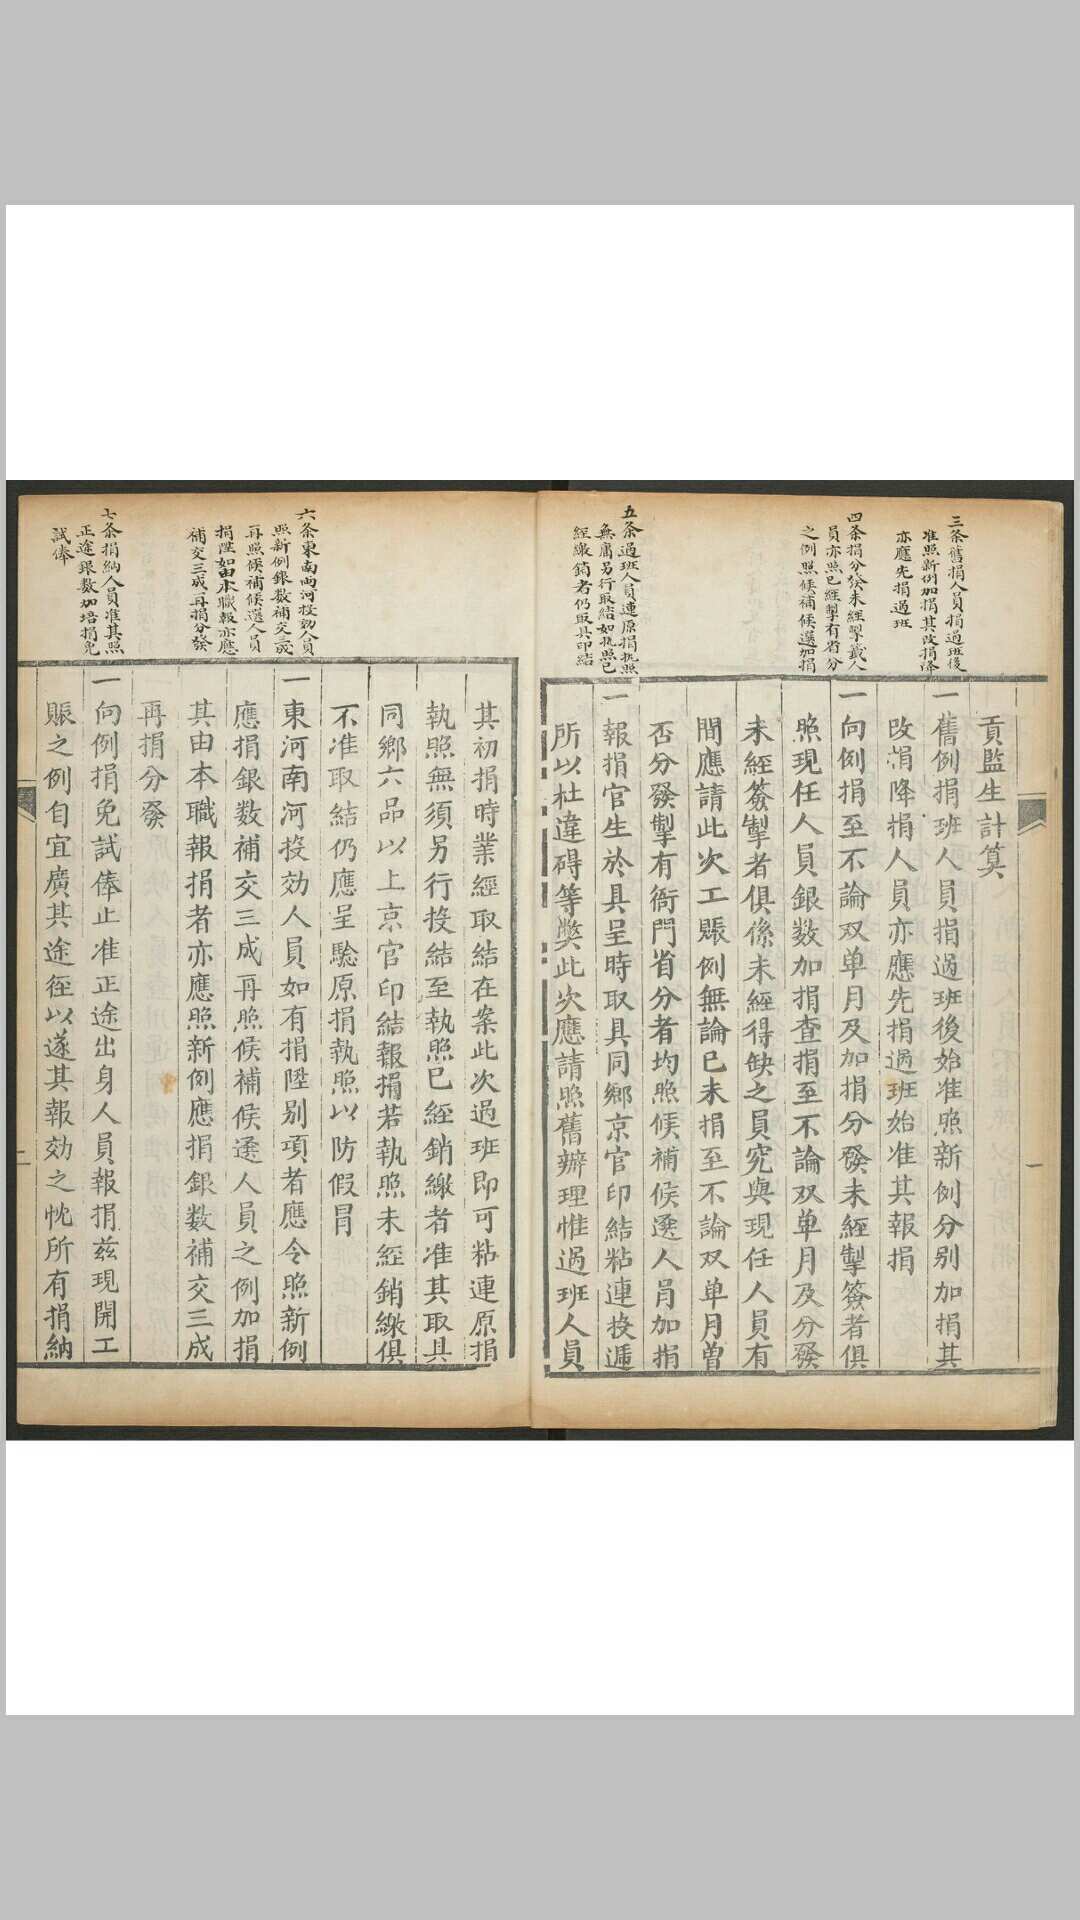 三条舊捐人員捐過班後
准照新例加捐其改捐降
亦應先捐過班
四条捐分發未經掣籖人
員亦照已經掣有省分
之例照候補候選加捐
五条過班人員連原捐执照
無庸另行取結如执照已
經繳銷者仍取具印結
貢監生計算
一舊例捐班人員捐過班後始准照新例分别加捐其
改捐降捐人員亦應先捐過班始准其報捐
一向例捐至不論双单月及加捐分發未經掣簽者俱
照現任人員銀数加捐查捐至不論双单月及分發
未經簽掣者俱係未經得缺之員究與現任人員有
間應請此次工賑例無論已未捐至不論双单月曾
否分發掣有衙門省分者均照候補候選人員加捐
一報捐官生於具呈時取具同鄉京官印結粘連投遞
所以杜違碍等獘此次應請照舊辦理惟過班人員
一
六条東南两河投効人員
照新例銀数補交三成
再照候補候選人員
捐陞如由本職報亦應
補交三成再捐分發
七条捐納人員准其照
正途銀数加培捐免
試俸
其初捐時業經取結在案此次過班即可粘連原捐
執照無須另行投結至執照已經銷繳者准其取具
同鄉六品以上京官印結報捐若執照未經銷繳俱
不准取結仍應呈驗原捐執照以防假冐
一東河南河投効人員如有捐陞别項者應令照新例
應捐銀数補交三成再照候補候選人員之例加捐
其由本職報捐者亦應照新例應捐銀数補交三成
再捐分發
一向例捐免試俸止准正途出身人員報捐兹現開工
賑之例自宜廣其途径以遂其報効之忱所有捐納
二